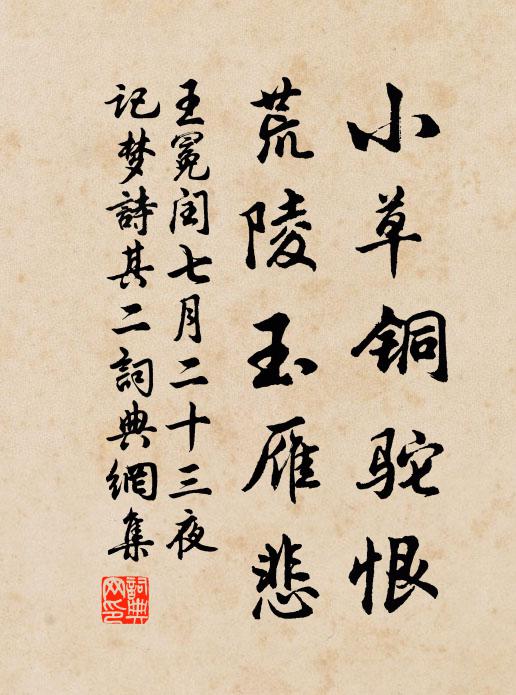 小草铜驼恨
荒陵玉雁悲
王冕闰七月二十三夜
记梦詩其二詞典網集
詞典网印